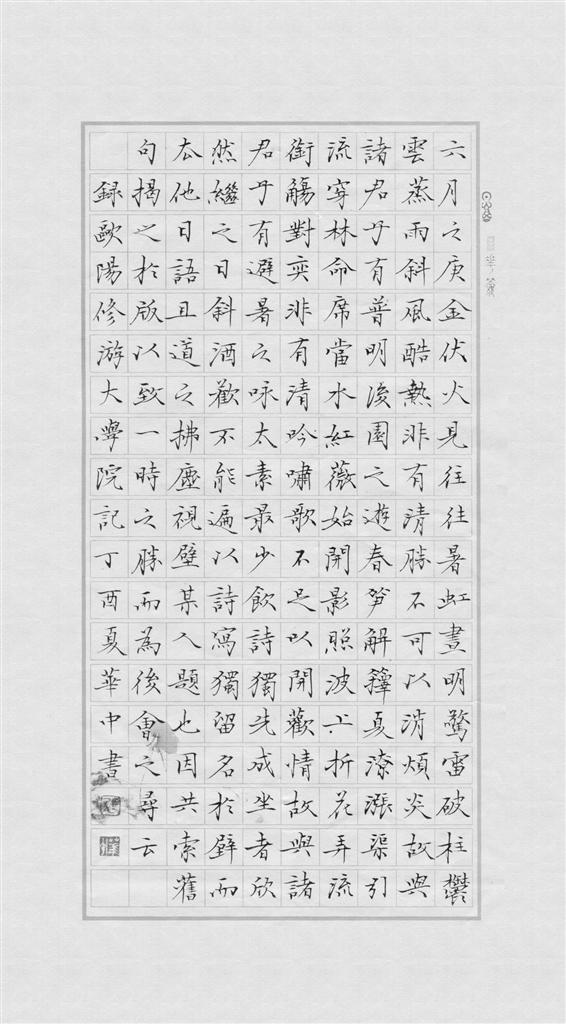 六月之庚金伏火見往往暑虹晝明驚雷破柱鬱
雲蒸雨斜風酷熱非有清勝不可以消煩炎故與
諸君子有普明後園之遊春笋解籜夏潦漲渠引
流穿林命席當水紅薇始開影照波上折花弄流
銜觴對奕非有清吟嘯歌不足以開歡情故與諸
君子有避暑之咏太素最少飲詩獨先成坐者欣
然繼之日斜酒歡不能遍以詩寫獨留名於壁而
去他日語且道之拂塵視壁某人題也因共索舊
句揭之於版以致一時之勝而為後會之尋云
録歐陽修游大學院記丁酉夏華中書